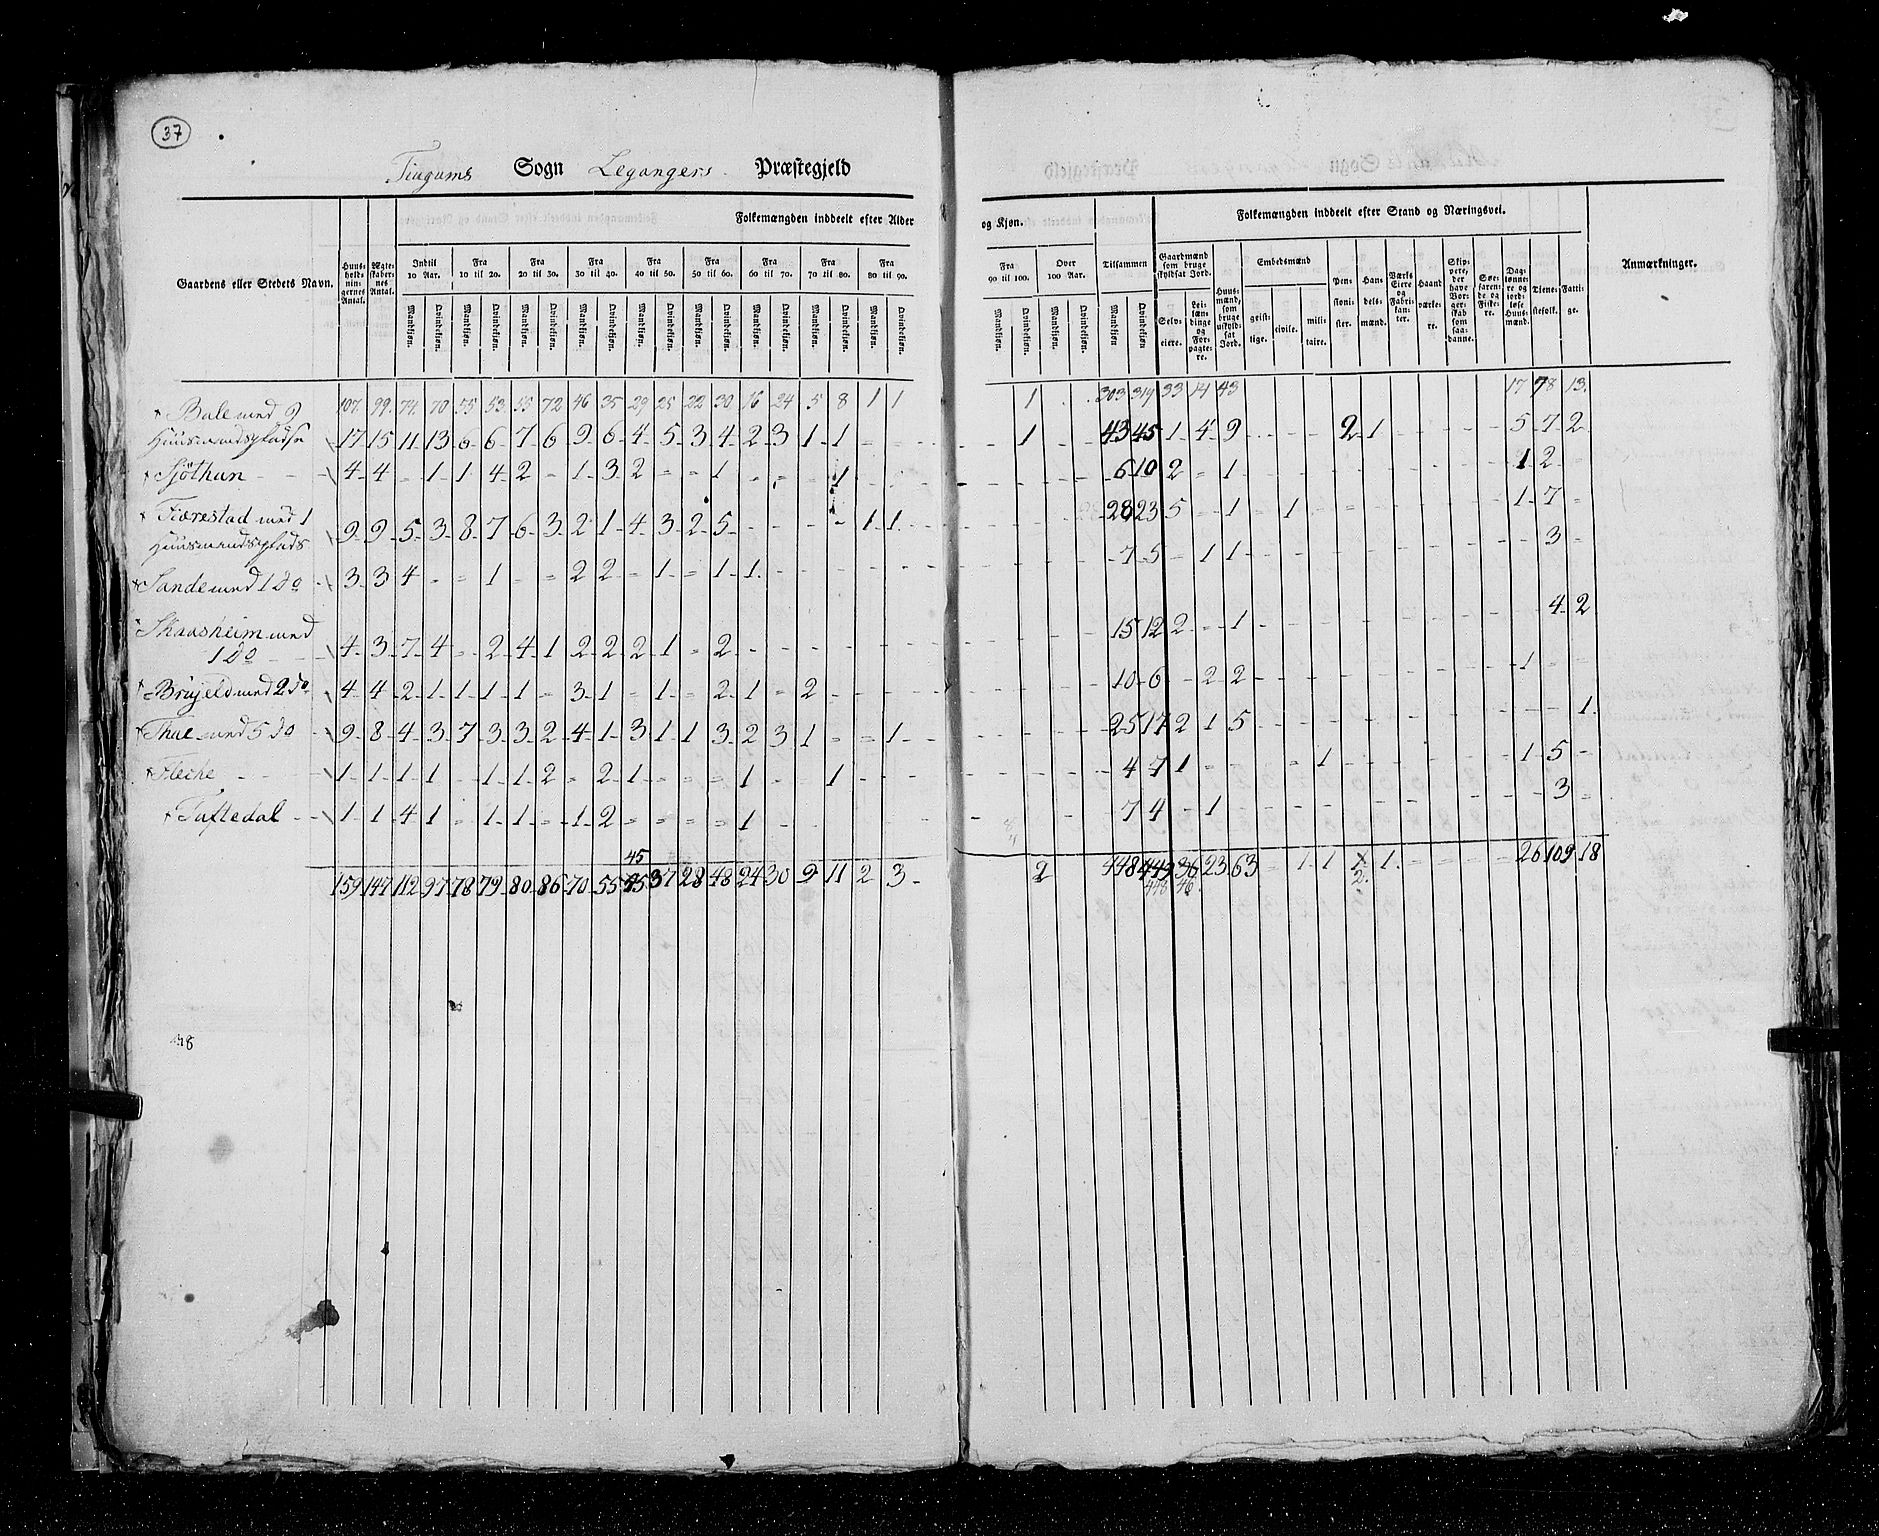 37
Tiugums Sogn Legangers Præstegjeld
Præstegjeld Sogn
Folkemængden inddeelt efter Alder og Kjøn.
Folkemængden inddeelt efter Stand og Næringsvei.
Gaardens eller Stedets Navn.
Huus-holdnin-gernes Antal.
Ægte-skaber-nes Antal.
Indtil 10 Aar. Fra 10 til 20. Fra 20 til 30. Fra 30 til 40. Fra 40 til 50. Fra 50 til 60. Fra 60 til 70. Fra 70 til 80. Fra 80 til 90. Fra 90 til 100. Over 100 Aar. Tilsammen
Mandkjøn. Qvindekjøn.
Gaardmænd som bruge skyldsat Jord. Selv-eiere. Lei-lændinge og Forpagte-re.
Huus-mænd, som bruge uskyld-sat Jord.
Embedsmænd geist-lige. civile. mili-taire.
Pen-sioni-ster.
Han-dels-mænd.
Værks Eiere og Fabri-kan-ter.
Haand værke-re.
Skip-pere, der have Bor-ger-skab som saa-danne.
Søe-farende og Fiske-re.
Dag-lønne-re og jord-løse Huus-mænd.
Tjene-stefolk.
Fatti-ge.
Anmærkninger.
107. 99. 74. 70 55 53. 55 72 46 35 29 25 22 30 16 24 5 8 1 1 1 303 319 33 14 43 17 78 13.
Bale med 9
Huusmandspladse 17 15 11 13 6 6 7 6 9 6 4 5 3 4 2 3 1 1 1 43 45 1 4 9 2 1 5 7 2
Sjöthun 4 4 1 1 4 2 1 3 2 1 1 6 10 2 1 1 2
Færestad med 1
Huusmandsplads 9 9 5 3 8 7 6 3 2 1 4 3 2 5 1 1 28 23 5 1 1 1 7
Sande med 1 do 3 3 4 1 2 2 1 1 1 7 5 1 1 3
Skaasheim med
1 do 4 3 7 4 2 4 1 2 2 2 1 2 15 12 2 1 4 2
Brujeld med 2 do 4 4 2 1 1 1 1 3 1 1 2 1 2 10 6 2 2 1
Thue med 5 do 9 8 4 3 7 3 3 2 4 1 3 1 1 3 2 3 1 1 25 17 2 1 5 1
Fleche 1 1 1 1 1 1 2 2 1 1 1 4 7 1 1 1 5
Tuftedal 1 1 4 1 1 1 1 2 1 7 4 1 3
45
159 147 112 97 78 79 80 86 70 55 45 37 28 48 24 30 9 11 2 3 2 448 449 36 23 63 1 1 1 1 26 109 18
448 46 2
448